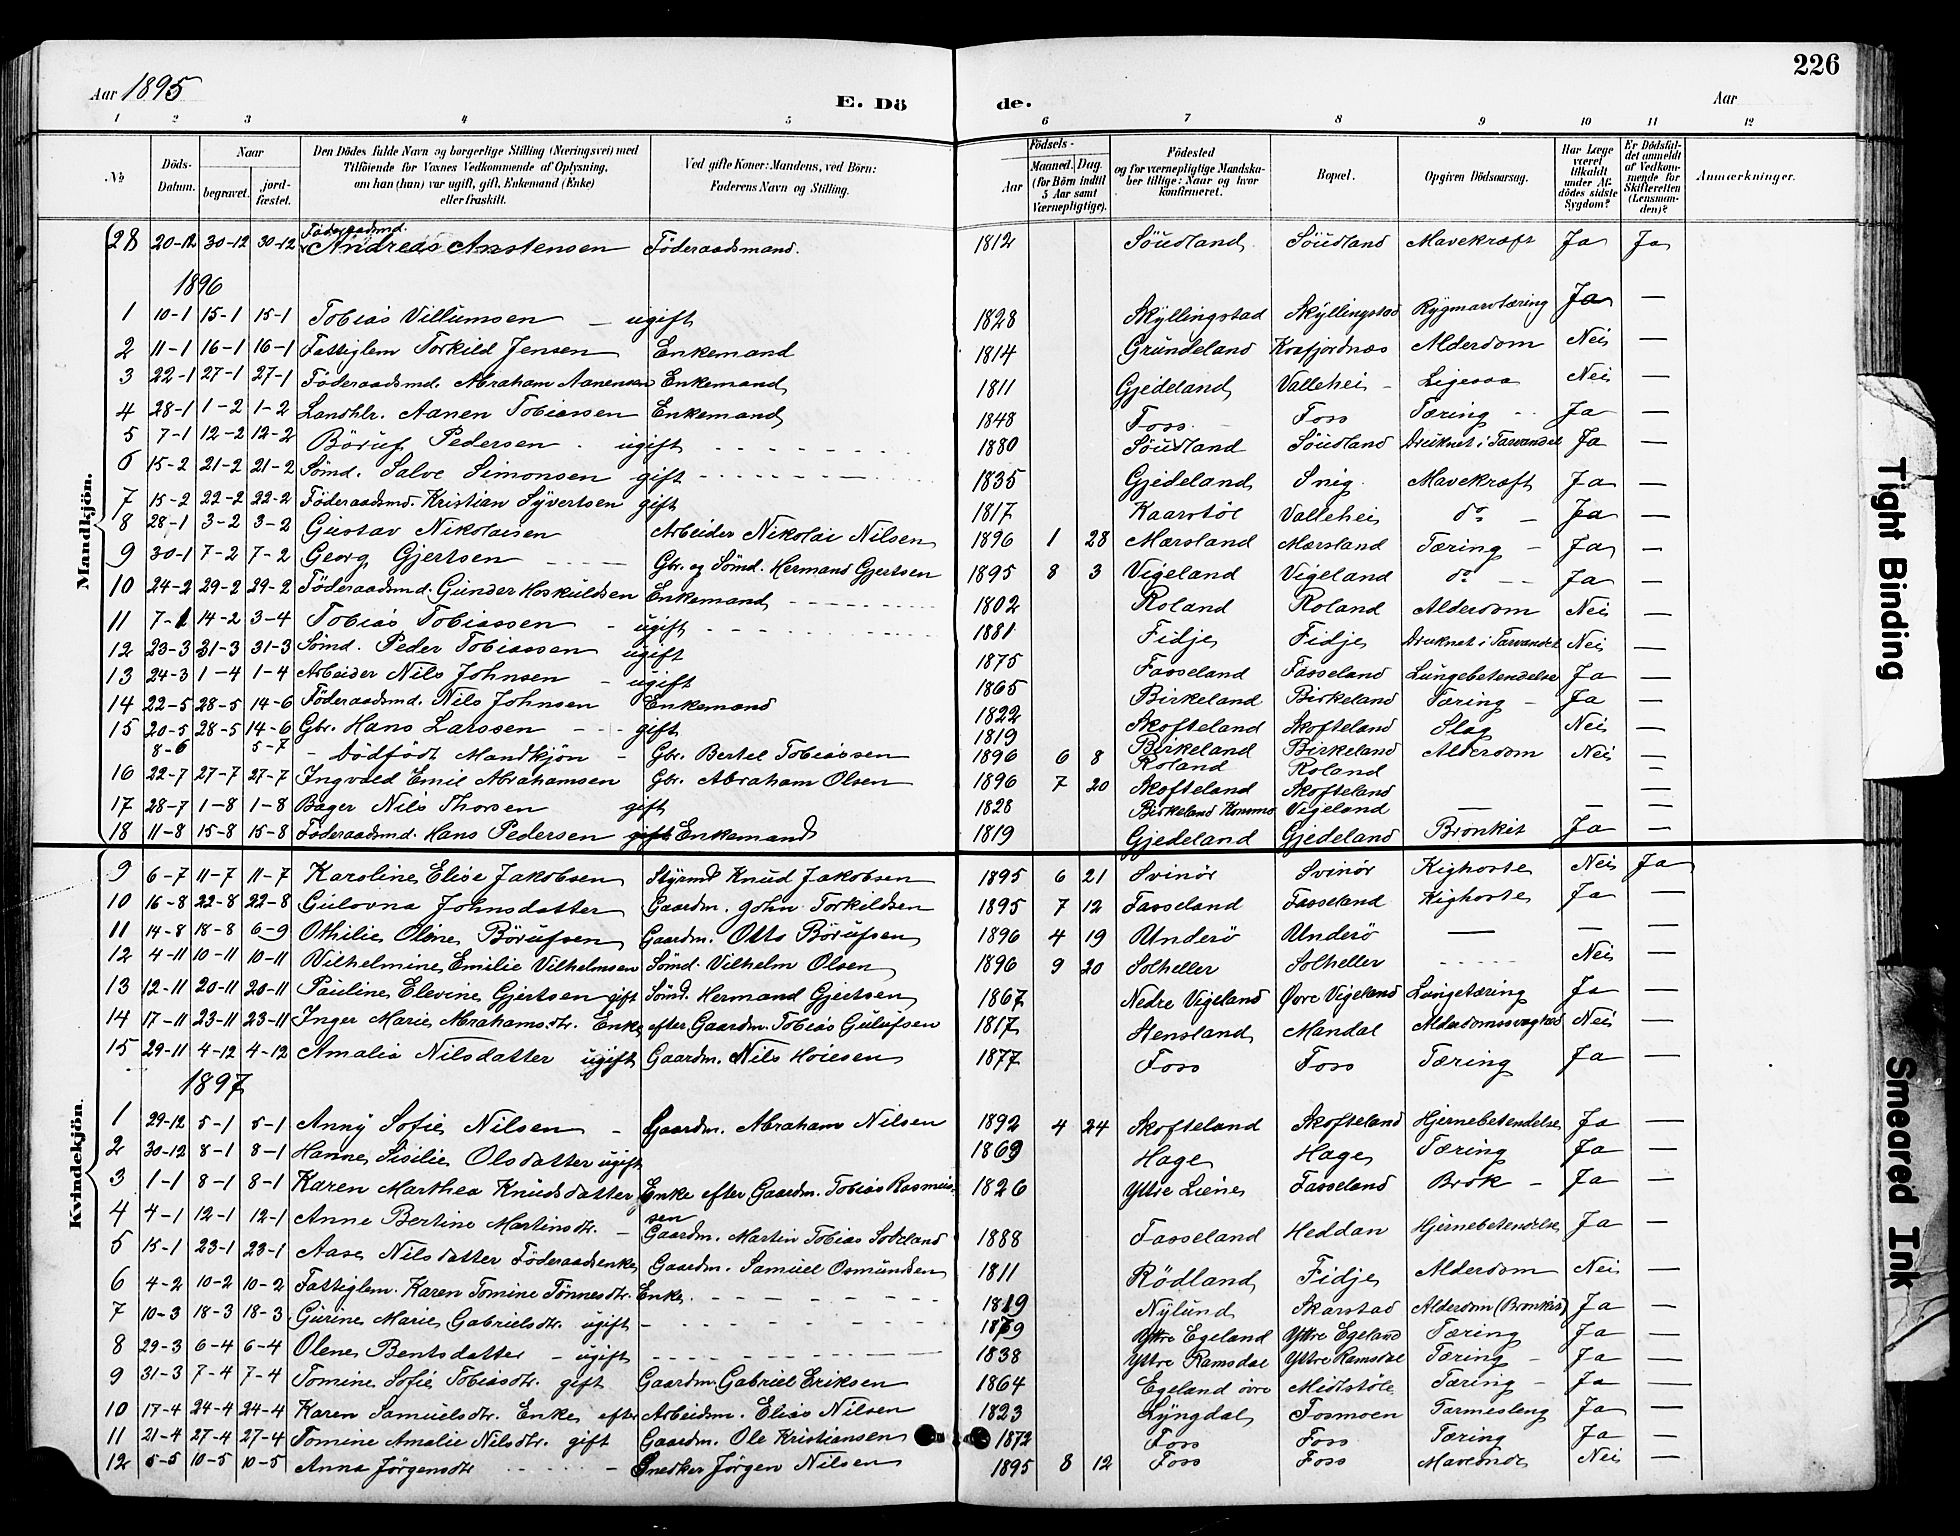 Aar 1895 E. Dö de. Aar 226
1 2 3 4 5 6 7 8 9 10 11 12
No Döds-Datum. Naar begravet. jordfæstet. Den Dödes fulde Navn og borgerlige Stilling (Næringsvei) med Tilföiende for Voxnes Vedkommende af Oplysning, om han (hun) var ugift, gift, Enkemand (Enke) eller fraskilt. Ved gifte Koner: Mandens, ved Börn: Faderens Navn og Stilling. Födsels- Aar Maaned. Dag. (for Börn indtil 5 Aar samt Værnepligtige). Födested og for værnepligtige Mandskaber tillige: Naar og hvor konfirmeret. Bopæl. Opgiven Dödsaarsag. Har Læge været tilkaldt under Afdödes sidste Sygdom? Er Dödsfaldet anmeldt af Vedkommende for Skifteretten (Lensmanden)? Anmærkninger.
Mandkjön.
28 20-12 30-12 30-12 Föderaadsmd. Andreas Anstensen Föderaadsmand. 1812 Söudland Söudland Mavekræft Ja Ja
1896
1 10-1 15-1 15-1 Tobias Villumsen – ugift 1828 Skyllingstad Skyllingstad Rygmarvtæring Ja —
2 11-1 16-1 16-1 Fattiglem Torkild Jensen Enkemand 1814 Grundeland Krafjordnæs Alderdom Nei —
3 22-1 27-1 27-1 Föderaadsmd. Abraham Aanensen Enkemand 1811 Gjedeland Vallehei – Ligesaa Nei —
4 28-1 1-2 1-2 Landhlr. Aanen Tobiassen Enkemand 1848 Foss Foss Tæring Ja —
5 7-1 12-2 12-2 Böruf Pedersen ugift 1880 Söudland Söudland Druknet i Tarvandet Ja —
6 15-2 21-2 21-2 Sömd. Salve Simonsen gift 1835 Gjedeland Snig Mavekræft Ja —
7 15-2 22-2 22-2 Föderaadsmd. Kristian Syvertsen gift 1817 Kaarstöl Vallehei do – Ja —
8 28-1 3-2 3-2 Gustav Nikolaisen Arbeider Nikolai Nilsen 1896 1 28 Marsland Marsland Tæring – Ja —
9 30-1 7-2 7-2 Georg Gjertsen Gbr. og Sömd. Hermand Gjertsen 1895 8 3 Vigeland Vigeland do Ja —
10 24-2 29-2 29-2 Föderaadsmd. Gunder Hoskuldsen Enkemand 1802 Roland Roland Alderdom Nei —
11 7-1 14-2 3-4 Tobias Tobiassen – ugift 1881 Fidje Fidje Druknet i Tarvandet Nei —
12 23-3 31-3 31-3 Sömd. Peder Tobiassen ugift 1875 Fasseland Fasseland Lungebetendelse Ja —
13 24-3 1-4 1-4 Arbeider Nils Johnsen – ugift 1865 Birkeland Birkeland Tæring – Ja —
14 22-5 28-5 14-6 Föderaadsmd. Nils Johnsen Enkemand 1822 Skofteland Skofteland Slag Nei —
15 20-5 28-5 14-6 Gbr. Hans Larssen gift 1819 Birkeland Birkeland Alderdom Nei —
8-6 5-7 – Dödfödt Mandkjön – Gbr. Bertel Tobiassen 1896 6 8 Roland Roland —
16 22-7 27-7 27-7 Ingvald Emil Abrahamsen Gbr. Abraham Olsen 1896 7 20 Skofteland Skofteland —
17 28-7 1-8 1-8 Bager Nils Thorsen gift 1828 Birkeland Kommo Vigeland — — —
18 11-8 15-8 15-8 Föderaadsmd. Hans Pedersen gift Enkemand 1819 Gjedeland Gjedeland Bronkit Ja —
Kvindekjön.
9 6-7 11-7 11-7 Karoline Elise Jakobsen Styrmd Knud Jakobsen 1895 6 21 Svinör Svinör Kighoste Nei Ja
10 16-8 22-8 22-8 Gulovna Johnsdatter Gaardm. John Torkildsen 1895 7 12 Fasseland Fasseland Kighoste Ja —
11 14-8 18-8 6-9 Othilie Oline Börufsen Gaardm. Otto Börufsen 1896 4 19 Underö Underö — — —
12 4-11 10-11 10-11 Vilhelmine Emilie Vilhelmsen Sömd. Vilhelm Olsen 1896 9 20 Solheller Solheller Nei —
13 12-11 20-11 20-11 Pauline Elevine Gjertsen gift Sömd. Hermand Gjertsen 1867 Nedre Vigeland Øvre Vigeland Lungetæring Ja —
14 17-11 23-11 23-11 Inger Marie Abrahamsdtr. Enke efter Gaardm. Tobias Gulufsen 1817 Stensland Mandal Alderdomssvaghed Nei —
15 29-11 4-12 4-12 Amalia Nilsdatter ugift Gaardm. Nils Hoiesen 1877 Foss Foss Tæring Ja —
1897
1 29-12 5-1 5-1 Anny Sofie Nilsen – Gaardm. Abraham Nilsen 1892 4 24 Skofteland Skofteland Hjernebetendelse Ja —
2 30-12 8-1 8-1 Hanne Sisilie Olsdatter ugift 1869 Hage Hage Tæring Ja —
3 1-1 8-1 8-1 Karen Marthea Knudsdatter Enke efter Gaardm. Tobias Rasmussen 1826 Yttre Liene Fasseland Brok – Ja —
4 4-1 12-1 12-1 Anne Bertine Martinsdtr. – Gaardm. Martin Tobias Sodeland 1888 Fasseland Heddan Hjernebetendelse Ja —
5 15-1 23-1 23-1 Aase Nilsdatter Föderaadsenke Gaardm. Samuel Osmundsen 1811 Rödland Fidje Alderdom Nei —
6 4-2 10-2 10-2 Fattiglem. Karen Tomine Tönnesdtr. Enke 1819 Nylund Skarstad Alderdom (Bronkit) Ja —
7 10-3 18-3 18-3 Gurine Marie Gabrielsdtr. ugift 1879 Yttre Egeland Yttre Egeland Tæring Ja —
8 29-3 6-4 6-4 Olene Bentsdatter – ugift 1838 Yttre Ramsdal Yttre Ramsdal Tæring – Ja —
9 31-3 7-4 7-4 Tomine Sofie Tobiasdtr. gift Gaardm. Gabriel Eriksen 1864 Egeland övre Midtstöle Tæring – Ja —
10 17-4 24-4 24-4 Karen Samuelsdtr. Enke efter Arbeidsm. Elias Nilsen 1823 Lyngdal Fosmoen Tarmesleng Ja —
11 21-4 27-4 27-4 Tomine Amalie Nilsdtr. gift Gaardm. Ole Kristiansen 1872 Foss Foss Tæring Ja —
12 5-5 10-5 10-5 Anna Jörgensdtr Snedker Jörgen Nilsen 1895 8 12 Foss Foss Maveonde Nei —
Tight Binding
Smeared Ink